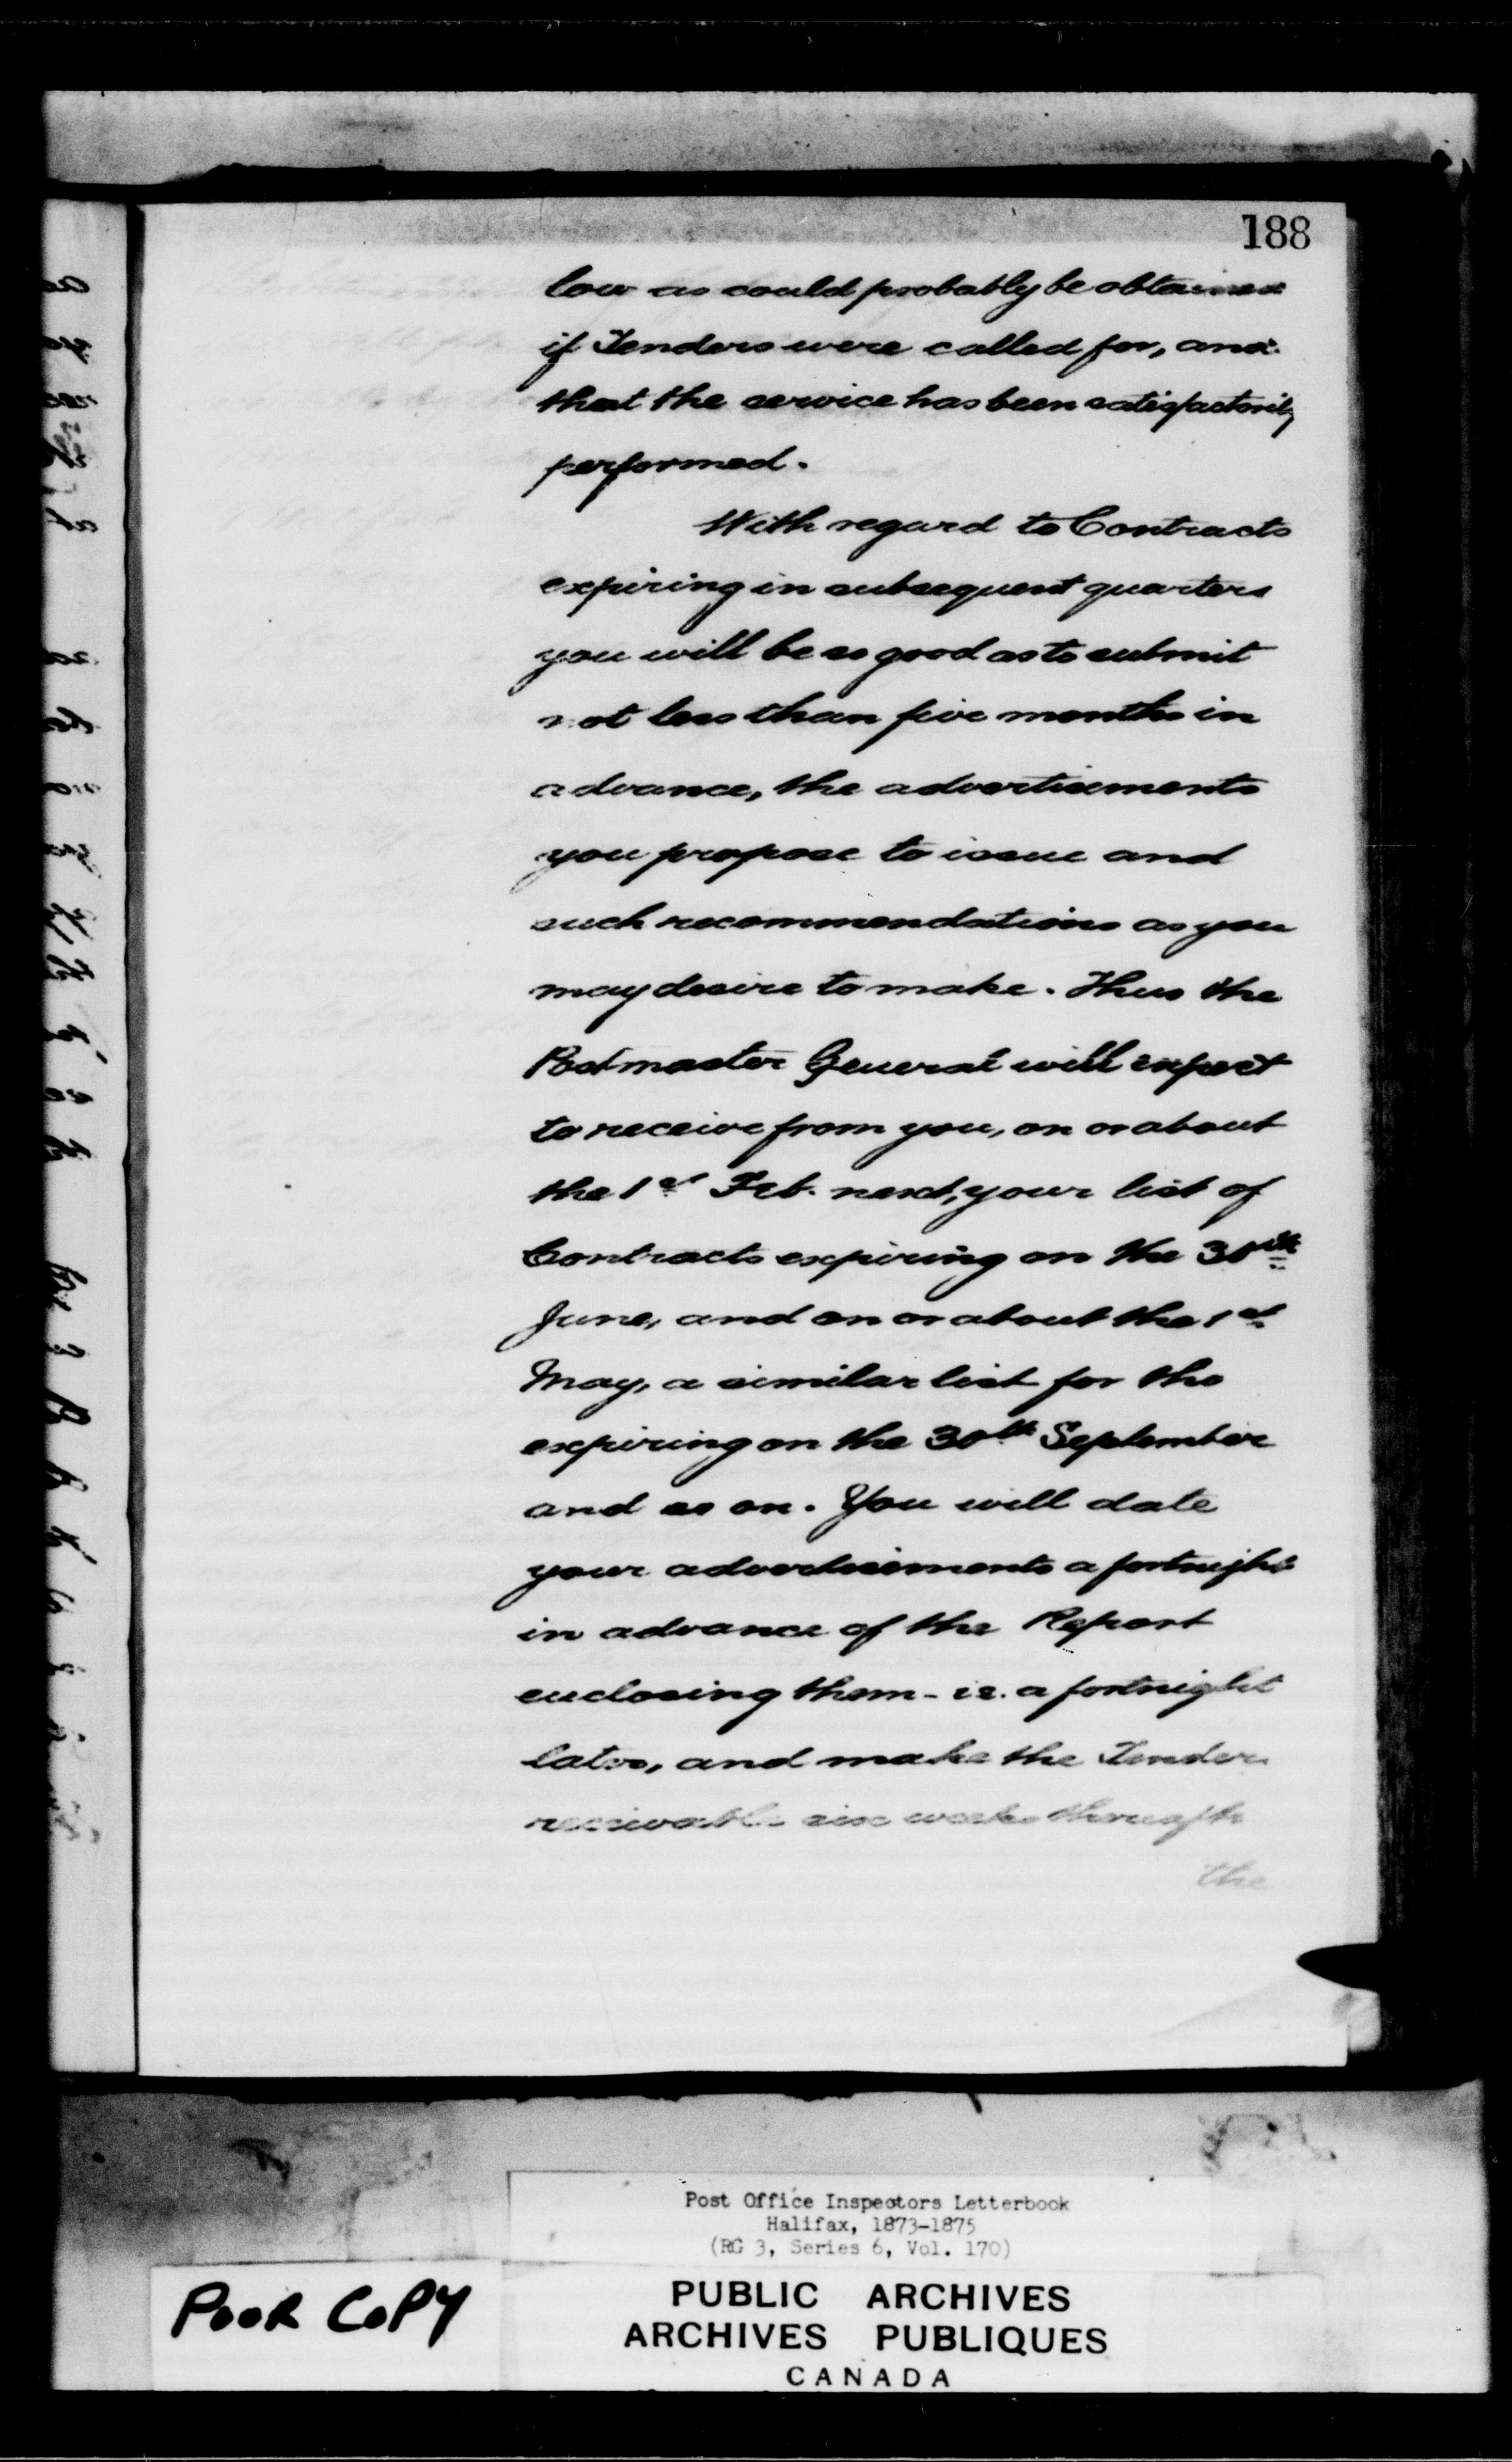 188
low as could probably be obtained
if Tenders were called for, and
that the service has been satisfactorily
performed.
With regard to Contracts
expiring in subsequent quarters
you will be so good as to submit
not less than five months in
advance, the advertisements
you propose to issue and
such recommendations as you
may desire to make. Thus the
Postmaster General will expect
to receive from you, on or about
the 1st Feb. next, your list of
Contracts expiring on the 30th
June, and on or about the 1st
May, a similar list for the
expiring on the 30th September
and so on. You will date
your advertisements a fortnight
in advance of the Report
enclosing them - i.e. a fortnight
later, and make the Tenders
receivable six weeks thereafter
the
Post Office Inspectors Letterbook
Halifax, 1873-1875
(RG 3, Series 6, Vol. 170)
POOR COPY
PUBLIC ARCHIVES
ARCHIVES PUBLIQUES
CANADA